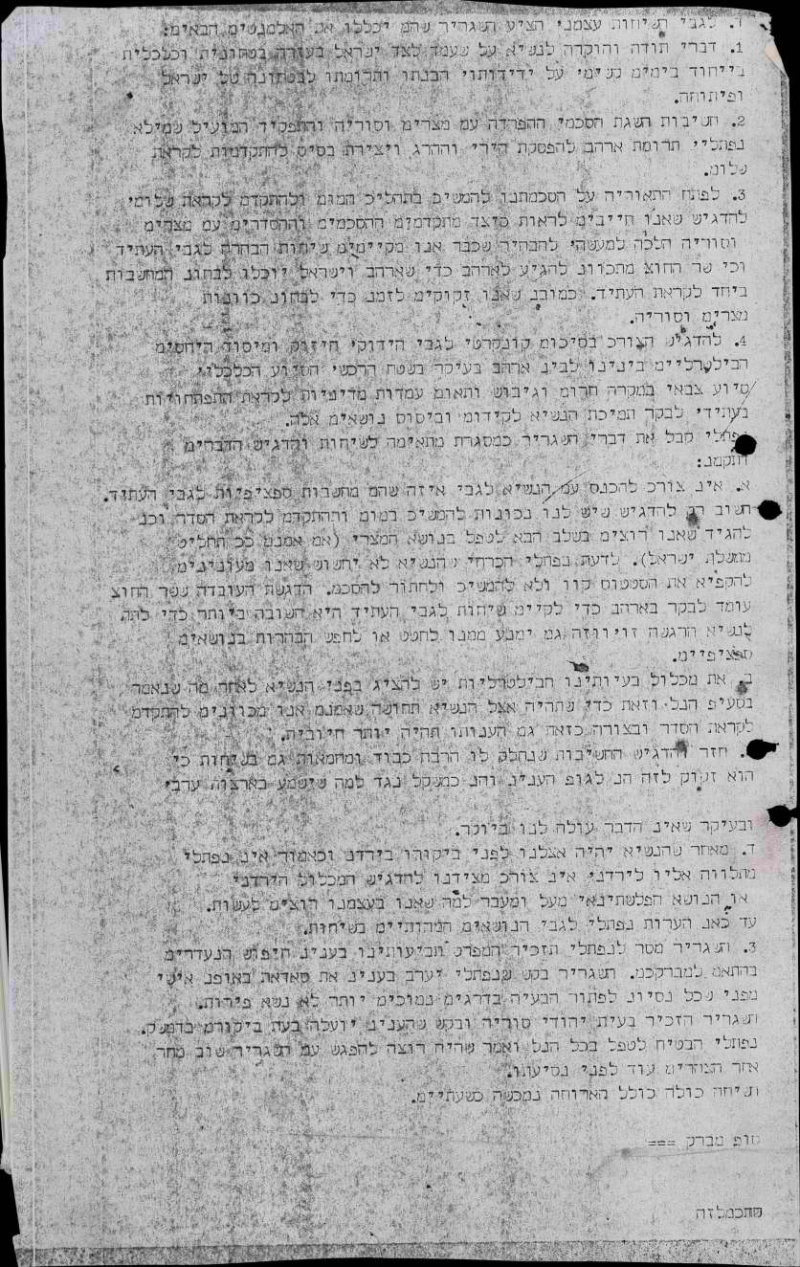 ד. לגבי השיחות עצמני הציע השגריר שהם יכללו את האלמנטים הבאים:
1. דברי תודה והוקרה לנשיא על שעמד לצד ישראל בעזרה בטחונית וכלכלית
בייחוד בימים קשים על ידידותו הבנתו ותרומתו לבטחונה של ישראל
ופיתוחה.
2. חשיבות השגת הסכמי ההפרדה עם מצרים וסוריה והתפקיד המועיל שמילא
נפתליי תרומת ארהב להפסקת הירי וההרג ויצירת בסיס להתקדמות לקראת
שלום.
3. לפתח התאוריה על הסכמתנו להמשיכ בתהליכ המום ולהתקדם לקראת שלומי
להדגיש שאנו חייבים לראות כיצד מתקדמים ההסכמים וההסדרים עם מצרים
וסוריה הלכה למעשהי להבהיר שכבר אנו מקיימים שיחות הבהרה לגבי העתיד
וכי שר החוצ מתכוונ להגיע לארהב כדי שארהב וישראל יוכלו לבחונ המחשבות
ביחד לקראת העתיד. כמובנ שאנו זקוקים לזמנ כדי לבחונ כוונות
מצרים וסוריה.
4. להדגיש הצורכ בסיכום קונקרטי לגבי הידוקי חיזוק ומיסוד היחסים
הבילטרליים בינינו לבינ ארהב בעיקר בשטח הרכשי הסיוע הכלכלוי
סיוע צבאי במקרה חרום וגיבוש ותאום עמדות מדיניות לקראת התפתחויות
בעתידי לבקר תמיכת הנשיא לקידום וביסוס נושאים אלה.
נפתלי קבל את דברי השגריר כמסגרת מתאימה לשיחות והדגיש הדברים
דתקמנ:
א. אינ צורכ להכנס עם הנשיא לגבי איזה שהם מחשבות ספציפיות לגבי העתיד.
חשוב רק להדגיש שיש לנו נכונות להמשיכ במום והתקדם לקראת הסדר וכנ
להגיד שאנו רוצים בשלב הבא לטפל בנושא המצרי (אם אמנם ככ תחליט
ממשלת ישראל). לדעת נפתלי הכרחי שהנשיא לא יחשוש שאנו מעונינים
להקפיא את הסטטוס קוו ולא להמשיכ ולחתור להסכם. הדגשת העובדה ששר החוצ
עומד לבקר בארהב כדי לקיים שיחות לגבי העתיד היא חשובה ביותר כדי לתת
לנשיא הרגשה זויווזה גם ימנע ממנו לחטט או לחפש הבהרות בנושאים
ספציפיים.
ב. את מכלול בעיותינו הבילטרליות יש להציג בפני הנשיא לאחר מה שנאמר
בסעיפ הנל וזאת כדי שתהיה אצל הנשיא תחושה שאמנם אנו מכוונים להתקדם
לקראת הסדר ובצורה כזאת גם הענותו תהיה יותר חיובית.
חזר והדגיש החשיבות שנחלק לו הרבה כבוד ומחמאות גם בשיחות כי
הוא זקוק לזה הנ לגופ הענינ והנ כמשקל נגד למה שישמע בארצות ערבי
ובעיקר שאינ הדבר עולה לנו ביוקר.
ד. מאחר שהנשיא יהיה אצלנו לפני ביקורו בירדנ וכאמור אינ נפתלי
מתלווה אליו לירדני אינ צורכ מצידנו להדגיש המכלול הירדני
או הנושא הפלשתינאי מעל ומעבר למה שאנו בעצמנו רוצים לעשות.
עד כאנ הערות נפתלי לגבי הנושאים המהותיים בשיחות.
3. השגריר מסר לנפתלי תזכיר המפרט תביעותינו בענינ חיפוש הנעדרים
בהתאם למברקכם. השגריר בקש שנפתלי יערב בענינ את סאדאת באופנ אישי
מפני שכל נסיונ לפתור הבעיה בדרגים נמוכים יותר לא נשא פירות.
השגריר הזכיר בעית יהודי סוריה ובקש שהענינ יועלה בעת ביקורם בדמשק.
נפתלי הבטיח לטפל בכל הנל ואמר שהיה רוצה להפגש עם השגריר שוב מחר
אחר הצהרים עוד לפני נסיעתו.
השיחה כולה כולל הארוחה נמכשה כשעתיים.
סופ מברק ===